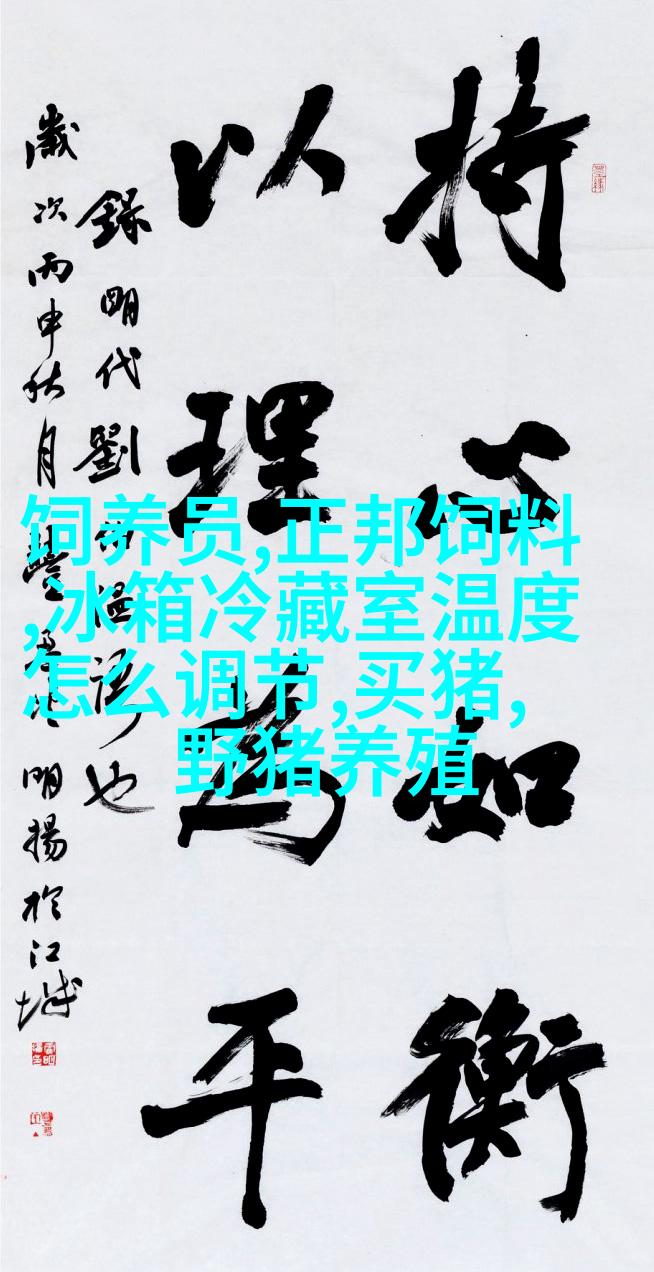 持心如衡
以理為平
錄明代劉伯溫語也
歲次丙申秋月
明揚於江城
饲养员,正邦饲料
,冰箱冷藏室温度
怎么调节,买猪,
野猪养殖